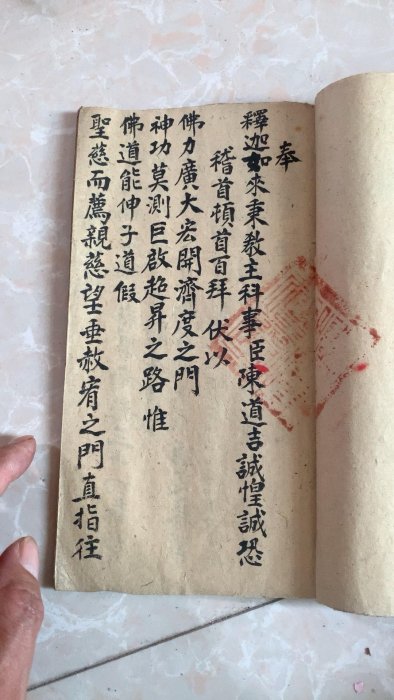 奉
釋迦如來秉教主科事臣陳道吉誠惶誠恐
稽首頓首百拜 伏以
佛力廣大宏開濟度之門
神功莫測巨啟超昇之路 惟
佛道能伸子道假
聖慈而薦親慈望垂赦宥之門直指往